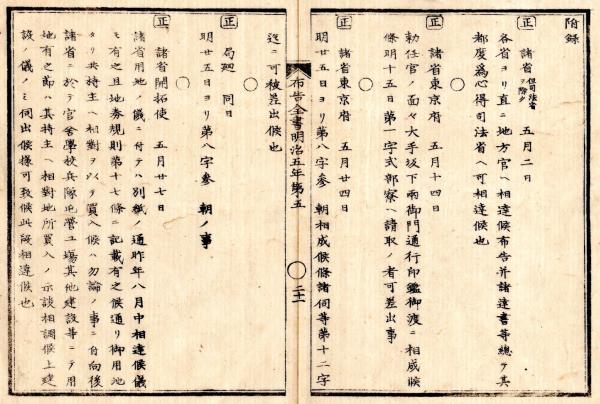 附録
正 諸省 但司法省ヲ除ク 五月二日
各省ヨリ直ニ地方官ヘ相達候布告并諸達書等總テ其
都度爲心得司法省ヘ可相達候也
○
正 諸省東京府 五月十四日
勅任官ノ面々大手坂下両御門通行印鑑御渡ニ相成候
條明十五日第一字式部寮ヘ請取ノ者可差出事
○
正 諸省東京府 五月廿四日
明廿五日ヨリ第八字參 朝相成候條諸伺等第十二字
布告全書明治五年第五 ○ 二十一
迄ニ可被差出候也
○
正 局廻 同日
明廿五日ヨリ第八字參 朝ノ事
○
正 諸省開拓使 五月廿七日
諸省用地ノ儀ニ付テハ別紙ノ通昨年八月中相達候儀
モ有之且地券規則第十七條ニ記載有之候通リ御用地
タリ共持主ヘ相對ヲ以テ買入候ハ勿論ノ事ニ付向後
諸省ニ於テ官舎學校兵隊屯營工場其他建設等ニテ用
地有之節ハ其持主ヘ相對地所買入ノ示談相調候上建
設ノ儀ノミ伺出候様可致候此段相達候也